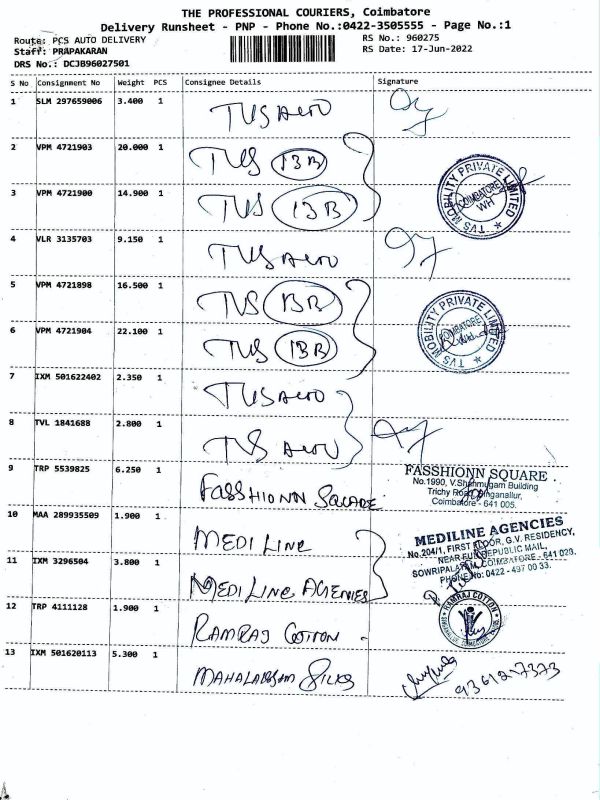 THE PROFESSIONAL COURIERS, Coimbatore
Delivery Runsheet - PNP - Phone No.:0422-3505555 - Page No.:1
Route: PCS AUTO DELIVERY
RS No.: 960275
Staff: PRAPAKARAN
RS Date: 17-Jun-2022
DRS No.: DCJB96027501
S No Consignment No Weight PCS Consignee Details Signature
1 SLM 297659006 3.400 1 TVS Auto
2 VPM 4721903 20.000 1 TVS IBB
3 VPM 4721900 14.900 1 TVS IBB
TVS MOBILITY PRIVATE LIMITED
COIMBATORE
WH
4 VLR 3135703 9.150 1 TVS Auto
5 VPM 4721898 16.500 1 TVS IBB
6 VPM 4721904 22.100 1 TVS IBB
TVS MOBILITY PRIVATE LIMITED
COIMBATORE
7 IXM 501622402 2.350 1 TVS Auto
8 TVL 1841688 2.800 1 TVS Auto
9 TRP 5539825 6.250 1 FASSHIONN SQUARE
FASSHIONN SQUARE
No.1990, V.Shanmugam Building
Trichy Road, Singanallur,
Coimbatore - 641 005.
10 MAA 289935509 1.900 1 MEDI LINE
MEDILINE AGENCIES
No.204/1, FIRST FLOOR, G.V. RESIDENCY,
NEAR FUN REPUBLIC MALL,
SOWRIPALAYAM, COIMBATORE - 641 028.
PHONE No: 0422 - 497 00 33.
11 IXM 3296504 3.800 1 MEDILINE AGENIES
12 TRP 4111128 1.900 1 RAMRAJ COTTON
RAMRAJ COTTON
13 IXM 501620113 5.300 1 MAHALAKSAM SILKS
9361217373